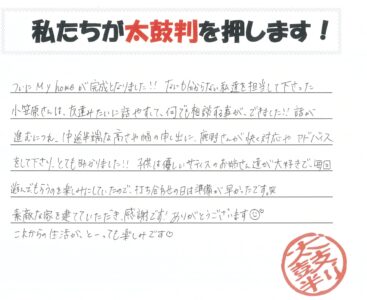 私たちが太鼓判を押します！
ついにMy homeが完成となりました!! なにも分からない私達を担当して下さった
小笠原さんは、友達みたいに話やすくて、何でも相談する事が、できました!! 話が
進むにつれ、中途半端な高さや幅の申し出に、熊野さんが快く対応やアドバイス
をして下さり、とても助かりました!! 子供は優しいサティスのお姉さん達が大好きで、毎回
遊んでもらうのを楽しみにしていたので、打ち合わせの日は準備が早かったです
素敵な家を建てていただき、感謝です! ありがとうございます☺
これからの生活が、とーっても楽しみです♡
太鼓判